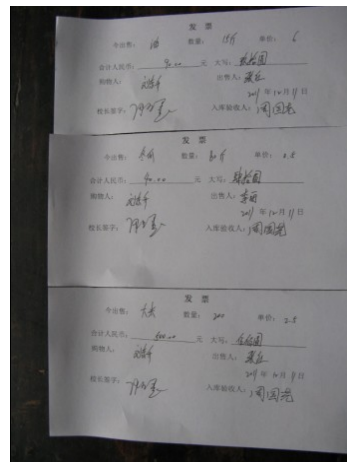 发 票
今出售: 油 数量: 15斤 单价: 6
合计人民币: 90.00 元 大写: 玖拾圆
购物人: 出售人:
2011 年 12 月 11 日
校长签字: 入库验收人: 周国亮
发 票
今出售: 冬瓜 数量: 80斤 单价: 0.5
合计人民币: 40.00 元 大写: 肆拾圆
购物人: 出售人: 李丽
2011 年 12 月 11 日
校长签字: 入库验收人: 周国亮
发 票
今出售: 数量: 200 单价: 2.5
合计人民币: 500.00 元 大写: 伍佰圆
购物人: 出售人:
2011 年 月 11 日
校长签字: 入库验收人: 周国亮